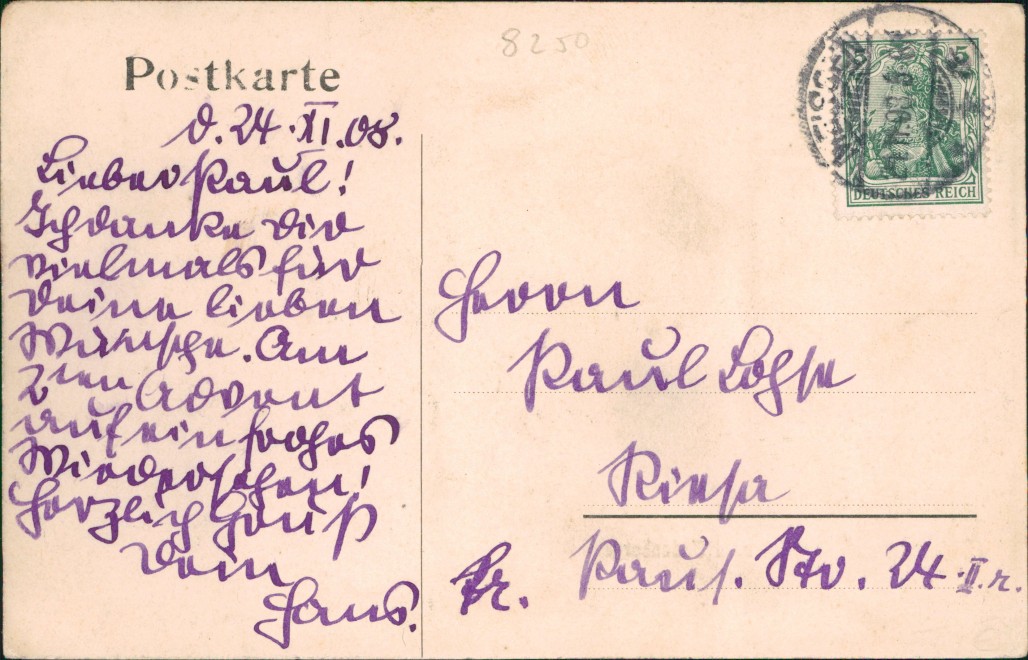 8250
Postkarte
DEUTSCHES REICH
5
5
d. 24. XI. 08.
Lieber Paul!
Ich danke dir
vielmals für
deine lieben
Wünsche. Am
2ten Advent
auf ein frohes
Wiedersehen!
Herzlich Gruß
Dein
Hans.
Herrn
Paul Lohse
Riesa
Str. 24 II. r.